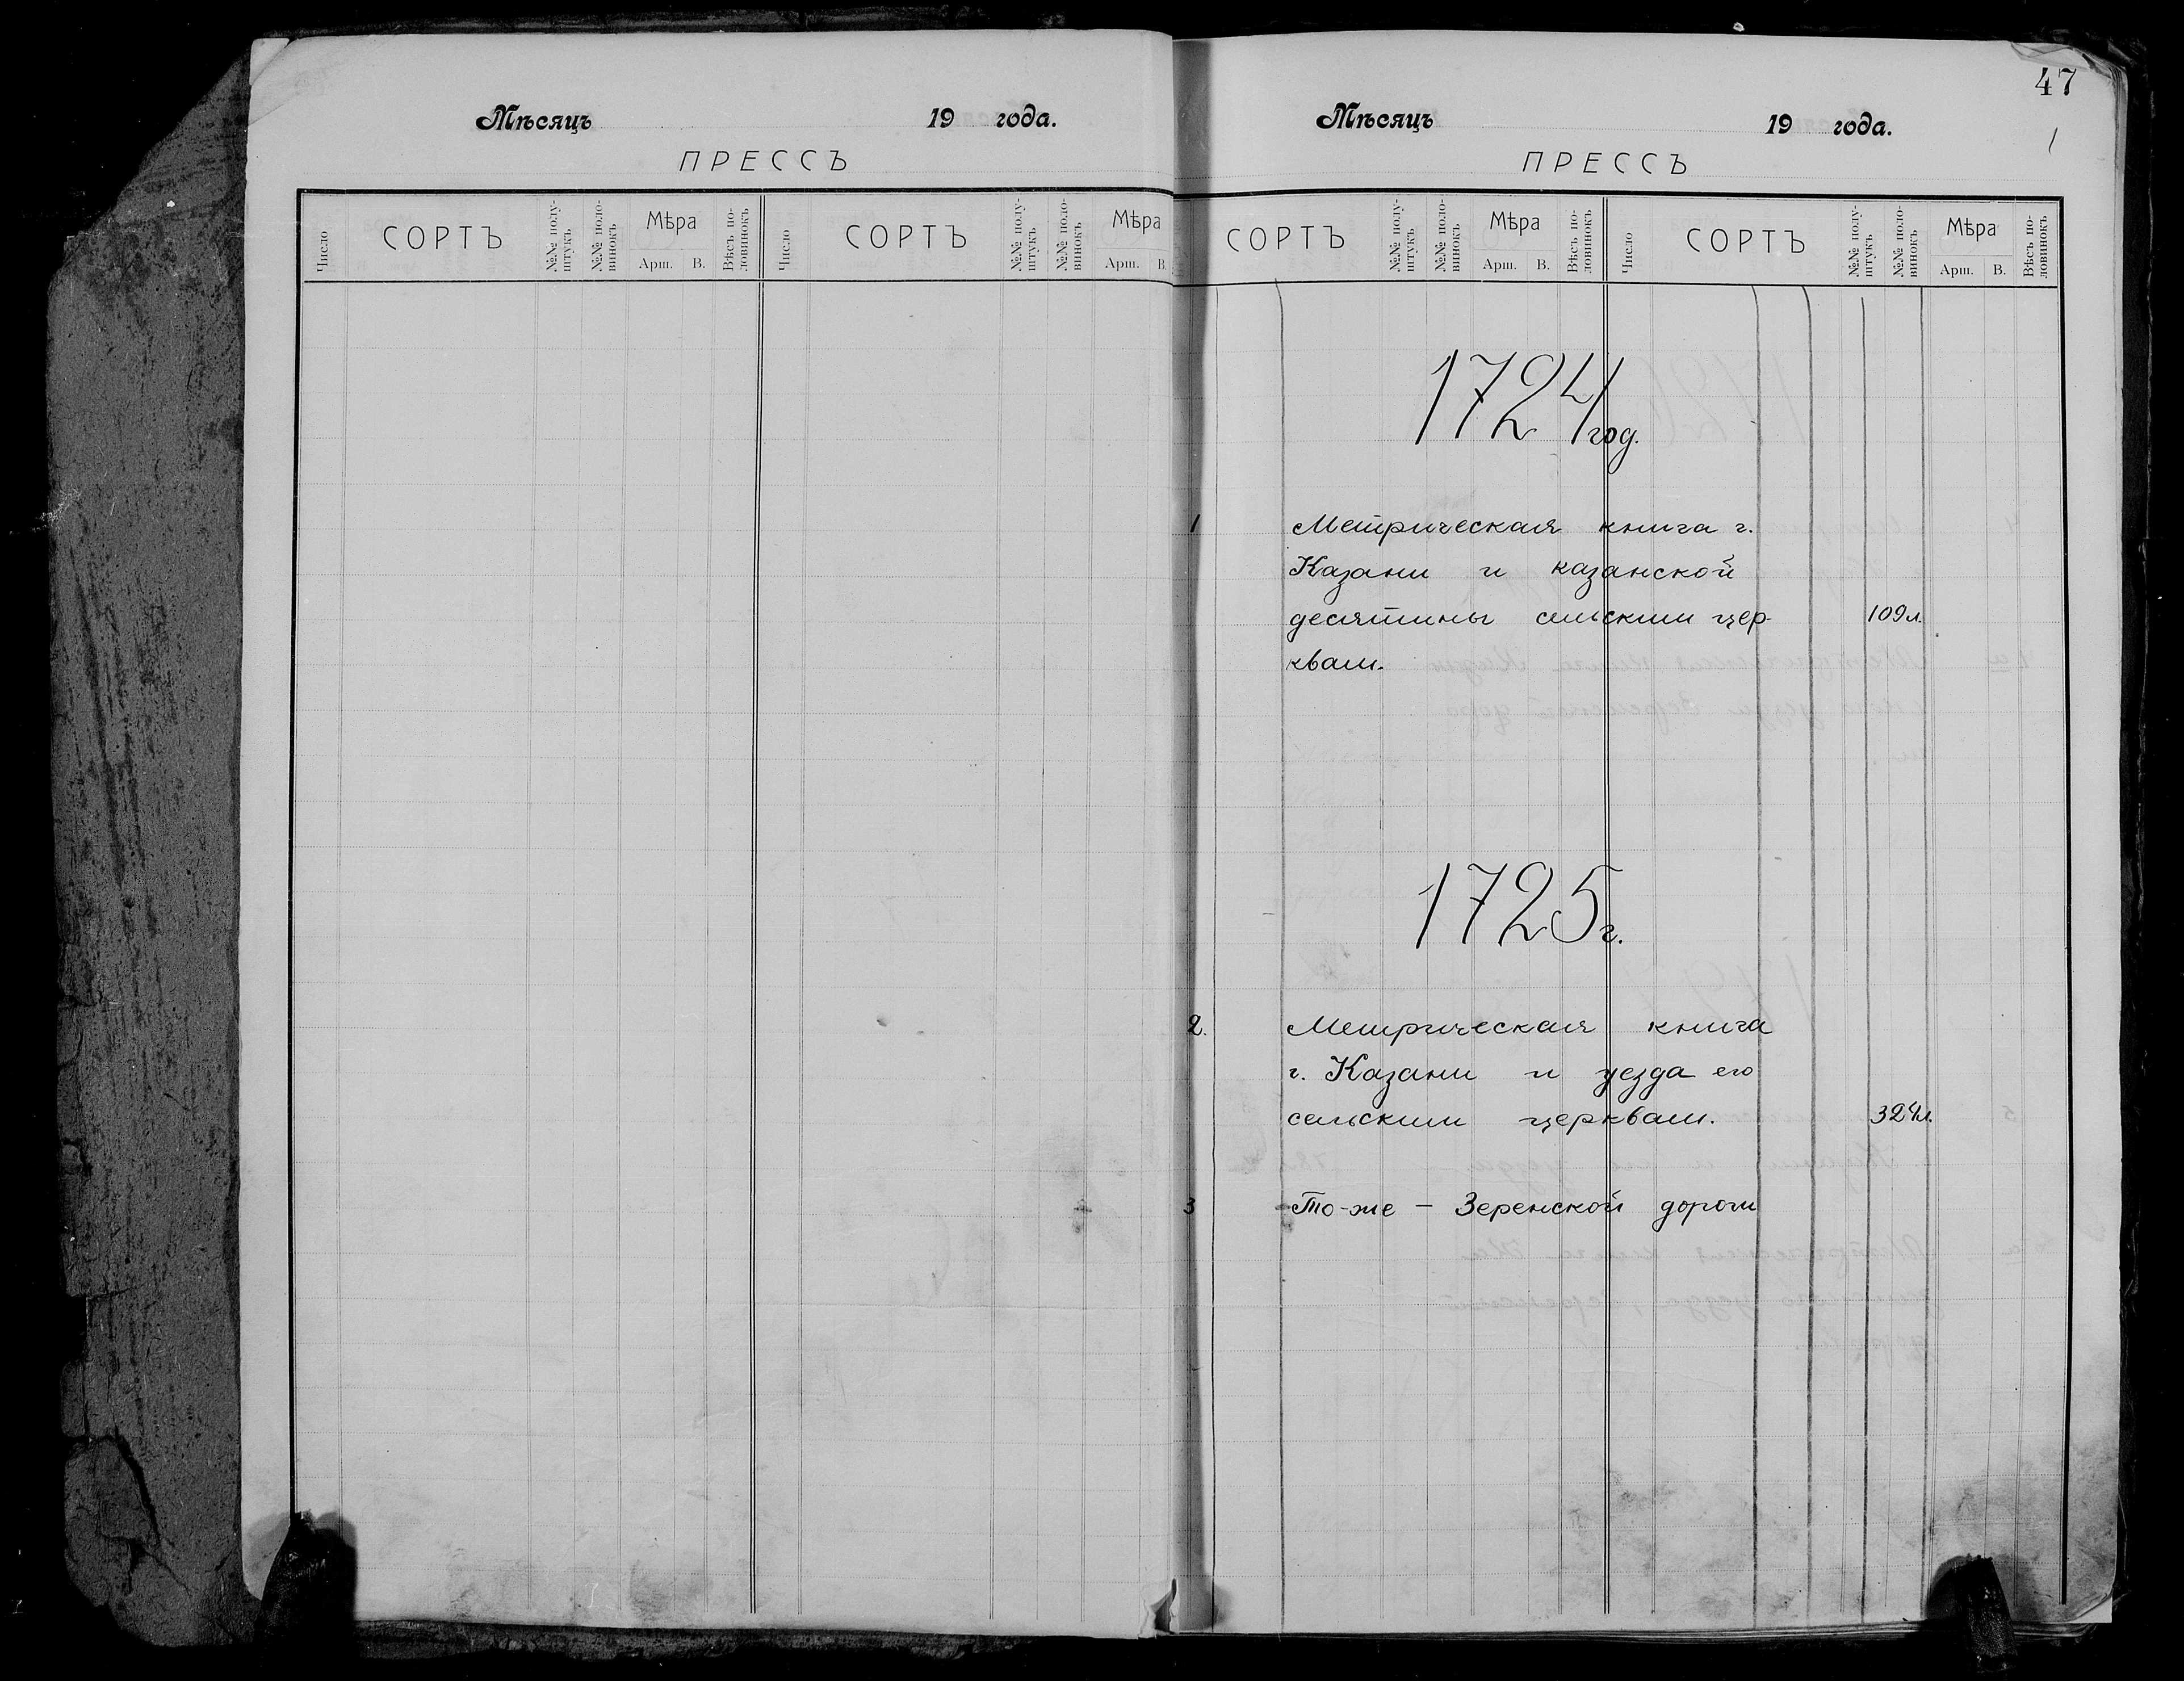 Мѣсяцъ 19 года.
ПРЕССЪ
Число СОРТЪ №№ полу-штукъ №№ поло-винокъ Мѣра Арш. В. Вѣсъ по-ловинокъ Число СОРТЪ №№ полу-штукъ №№ поло-винокъ Мѣра Арш. В.
47
Мѣсяцъ 19 года.
1
ПРЕССЪ
СОРТЪ №№ полу-штукъ №№ поло-винокъ Мѣра Арш. В. Вѣсъ по-ловинокъ Число СОРТЪ №№ полу-штукъ №№ поло-винокъ Мѣра Арш. В. Вѣсъ по-ловинокъ
1724 год.
1 Метрическая книга г.
Казани и казанской
десятины сельским цер-
109 л.
квам.
1725 г.
2. Метрическая книга
г. Казани и уезда его
сельским церквам. 324 л.
3 То-же – Зеренской дороги